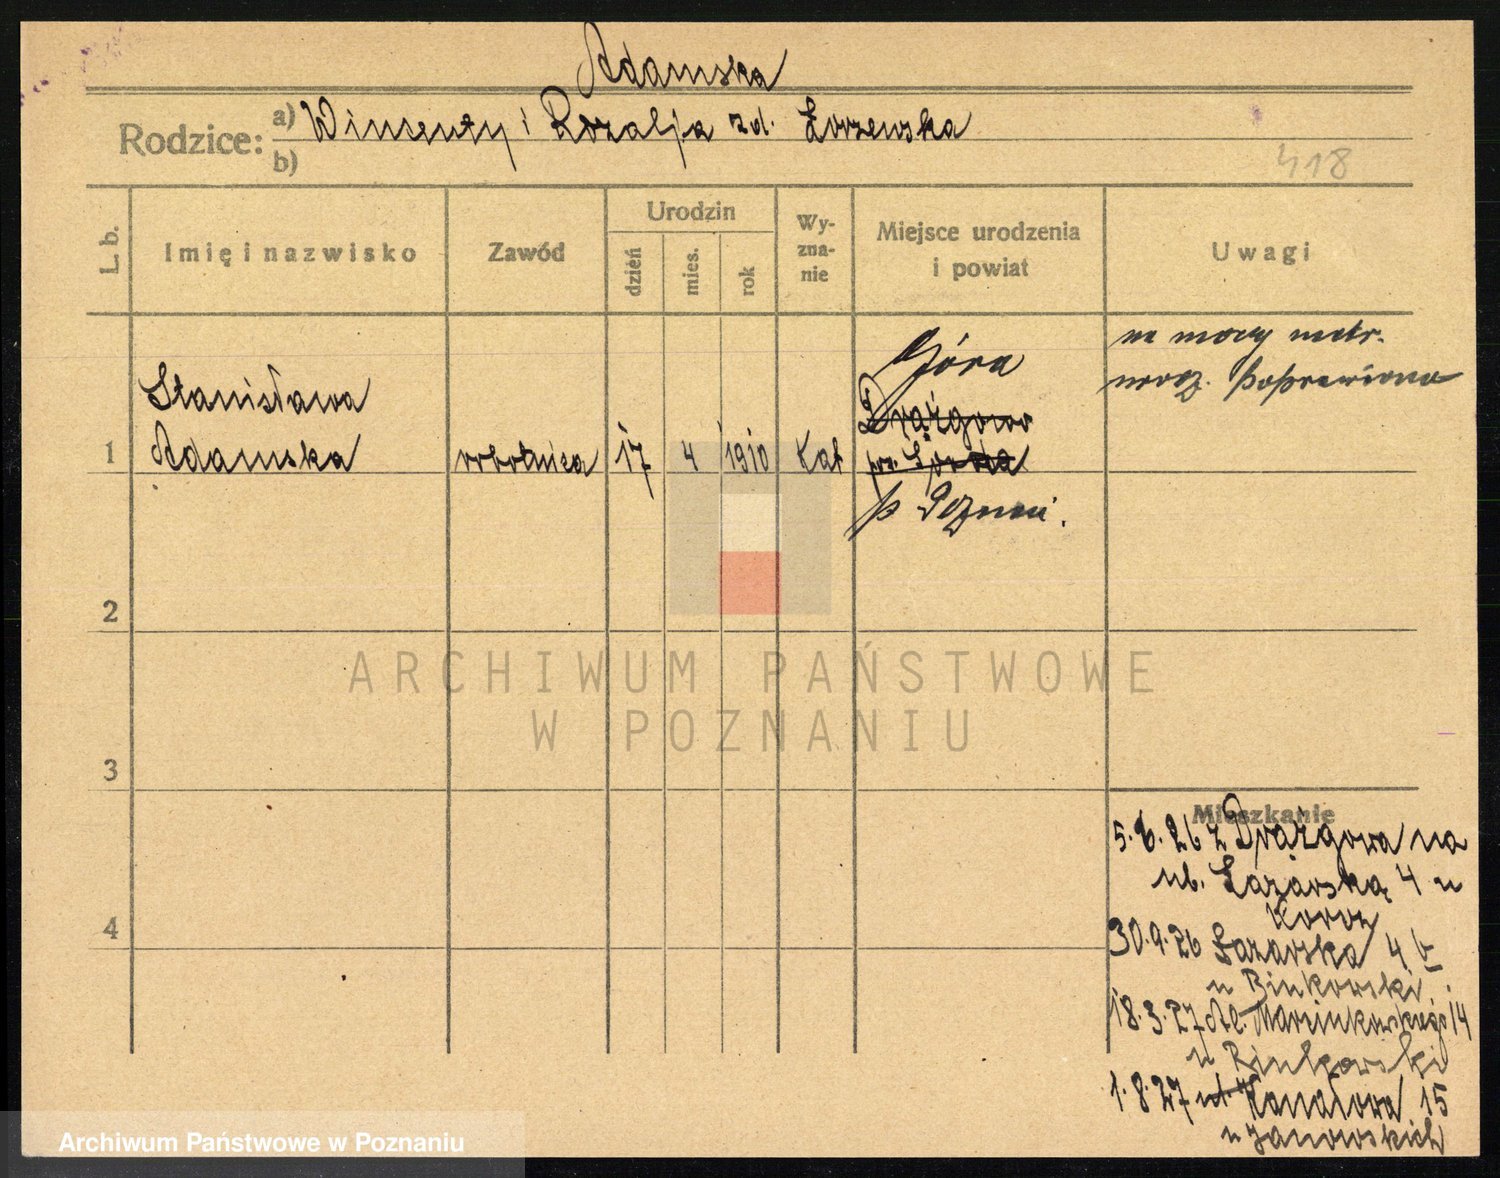 Adamska
Rodzice: a) Wincenty i Rozalja zd. Łozewska
b)
418
L. b.
Imię i nazwisko
Zawód
Urodzin
dzień
mies.
rok
Wy-
zna-
nie
Miejsce urodzenia
i powiat
Uwagi
na mocy metr.
urodz. poprawiono
Góra
Stanisława
Drązgowo
1 Adamska robotnica 17 4 1910 Kat pow. Środa
p Poznań.
2
ARCHIWUM PAŃSTWOWE
W POZNANIU
3
Mieszkanie
5.6.26 z Drązgowa na
ul. Łazarską 4 u
30.9.26 Łazarska 4
u Binkowski
18.3.27 Al. Marcinkowskiego 14
u Binkowski
4
1.8.27 ul. Kanałowa 15
u Janowskich
Archiwum Państwowe w Poznaniu